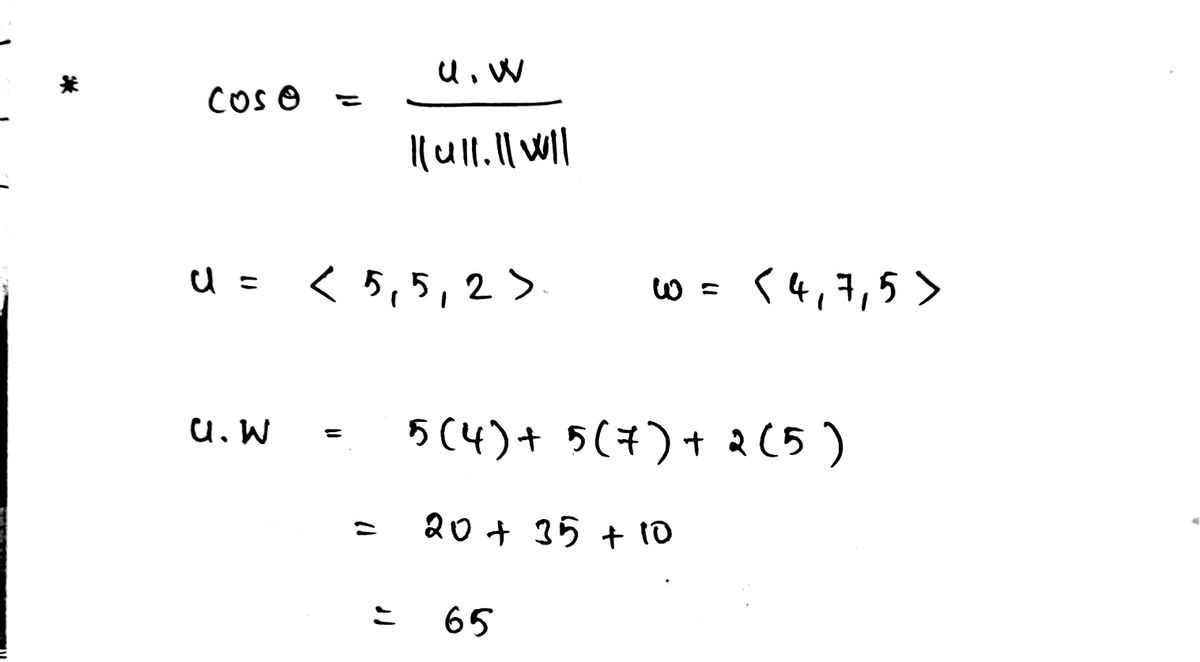 * cos θ = u.w / ||u||.||w||
u = < 5,5,2 > w = < 4,7,5 >
u.w = 5(4)+ 5(7)+ 2(5)
= 20 + 35 + 10
= 65